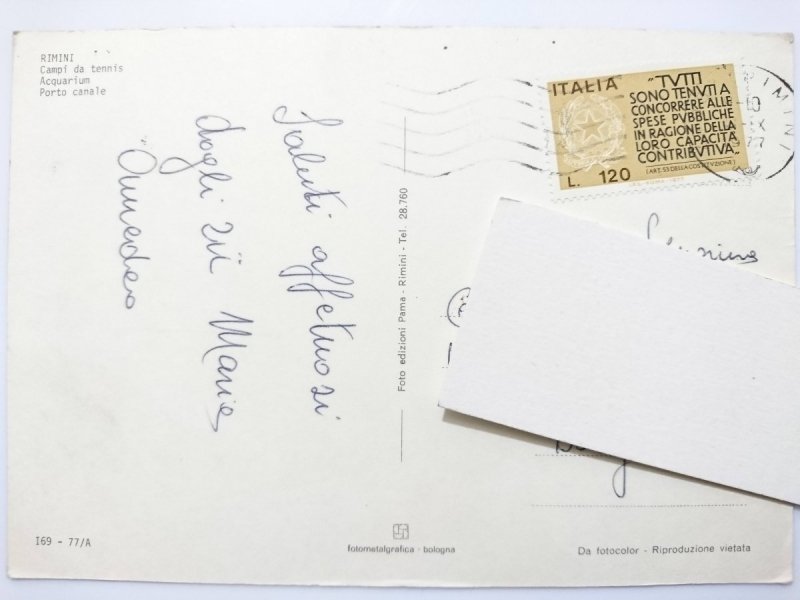 RIMINI
Campi da tennis
Acquarium
Porto canale
Saluti affettuosi
dagli zii Maria
Amedeo
Foto edizioni Pama - Rimini - Tel. 28.760
ITALIA
"TVTTI
SONO TENVTI A
CONCORRERE ALLE
SPESE PVBBLICHE
IN RAGIONE DELLA
LORO CAPACITÀ
CONTRIBVTIVA„
(ART. 53 DELLA COSTITVZIONE)
L. 120
RIMINI
I69 - 77/A
fotometalgrafica - bologna
Da fotocolor - Riproduzione vietata